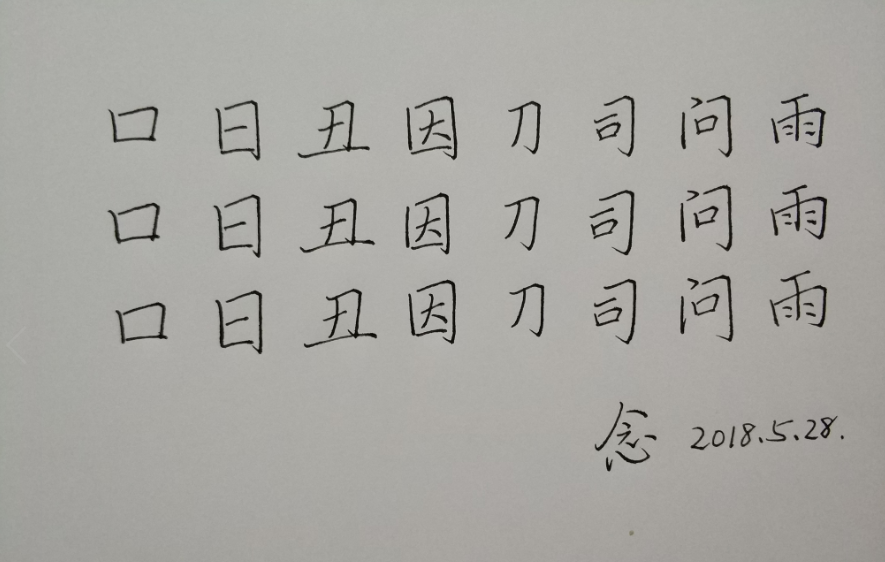 口日丑因刀司问雨
口日丑因刀司问雨
口日丑因刀司问雨
念 2018.5.28.